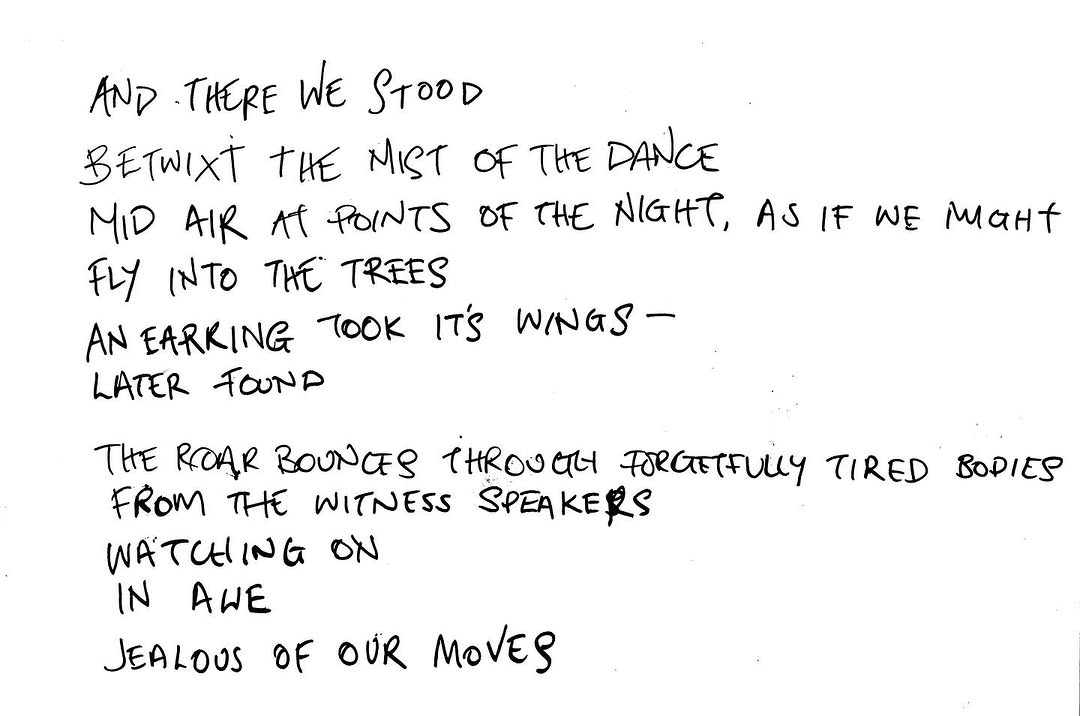 AND THERE WE STOOD
BETWIXT THE MIST OF THE DANCE
MID AIR AT POINTS OF THE NIGHT, AS IF WE MIGHT
FLY INTO THE TREES
AN EARRING TOOK IT'S WINGS —
LATER FOUND
THE ROAR BOUNCES THROUGH FORGETFULLY TIRED BODIES
FROM THE WITNESS SPEAKERS
WATCHING ON
IN AWE
JEALOUS OF OUR MOVES